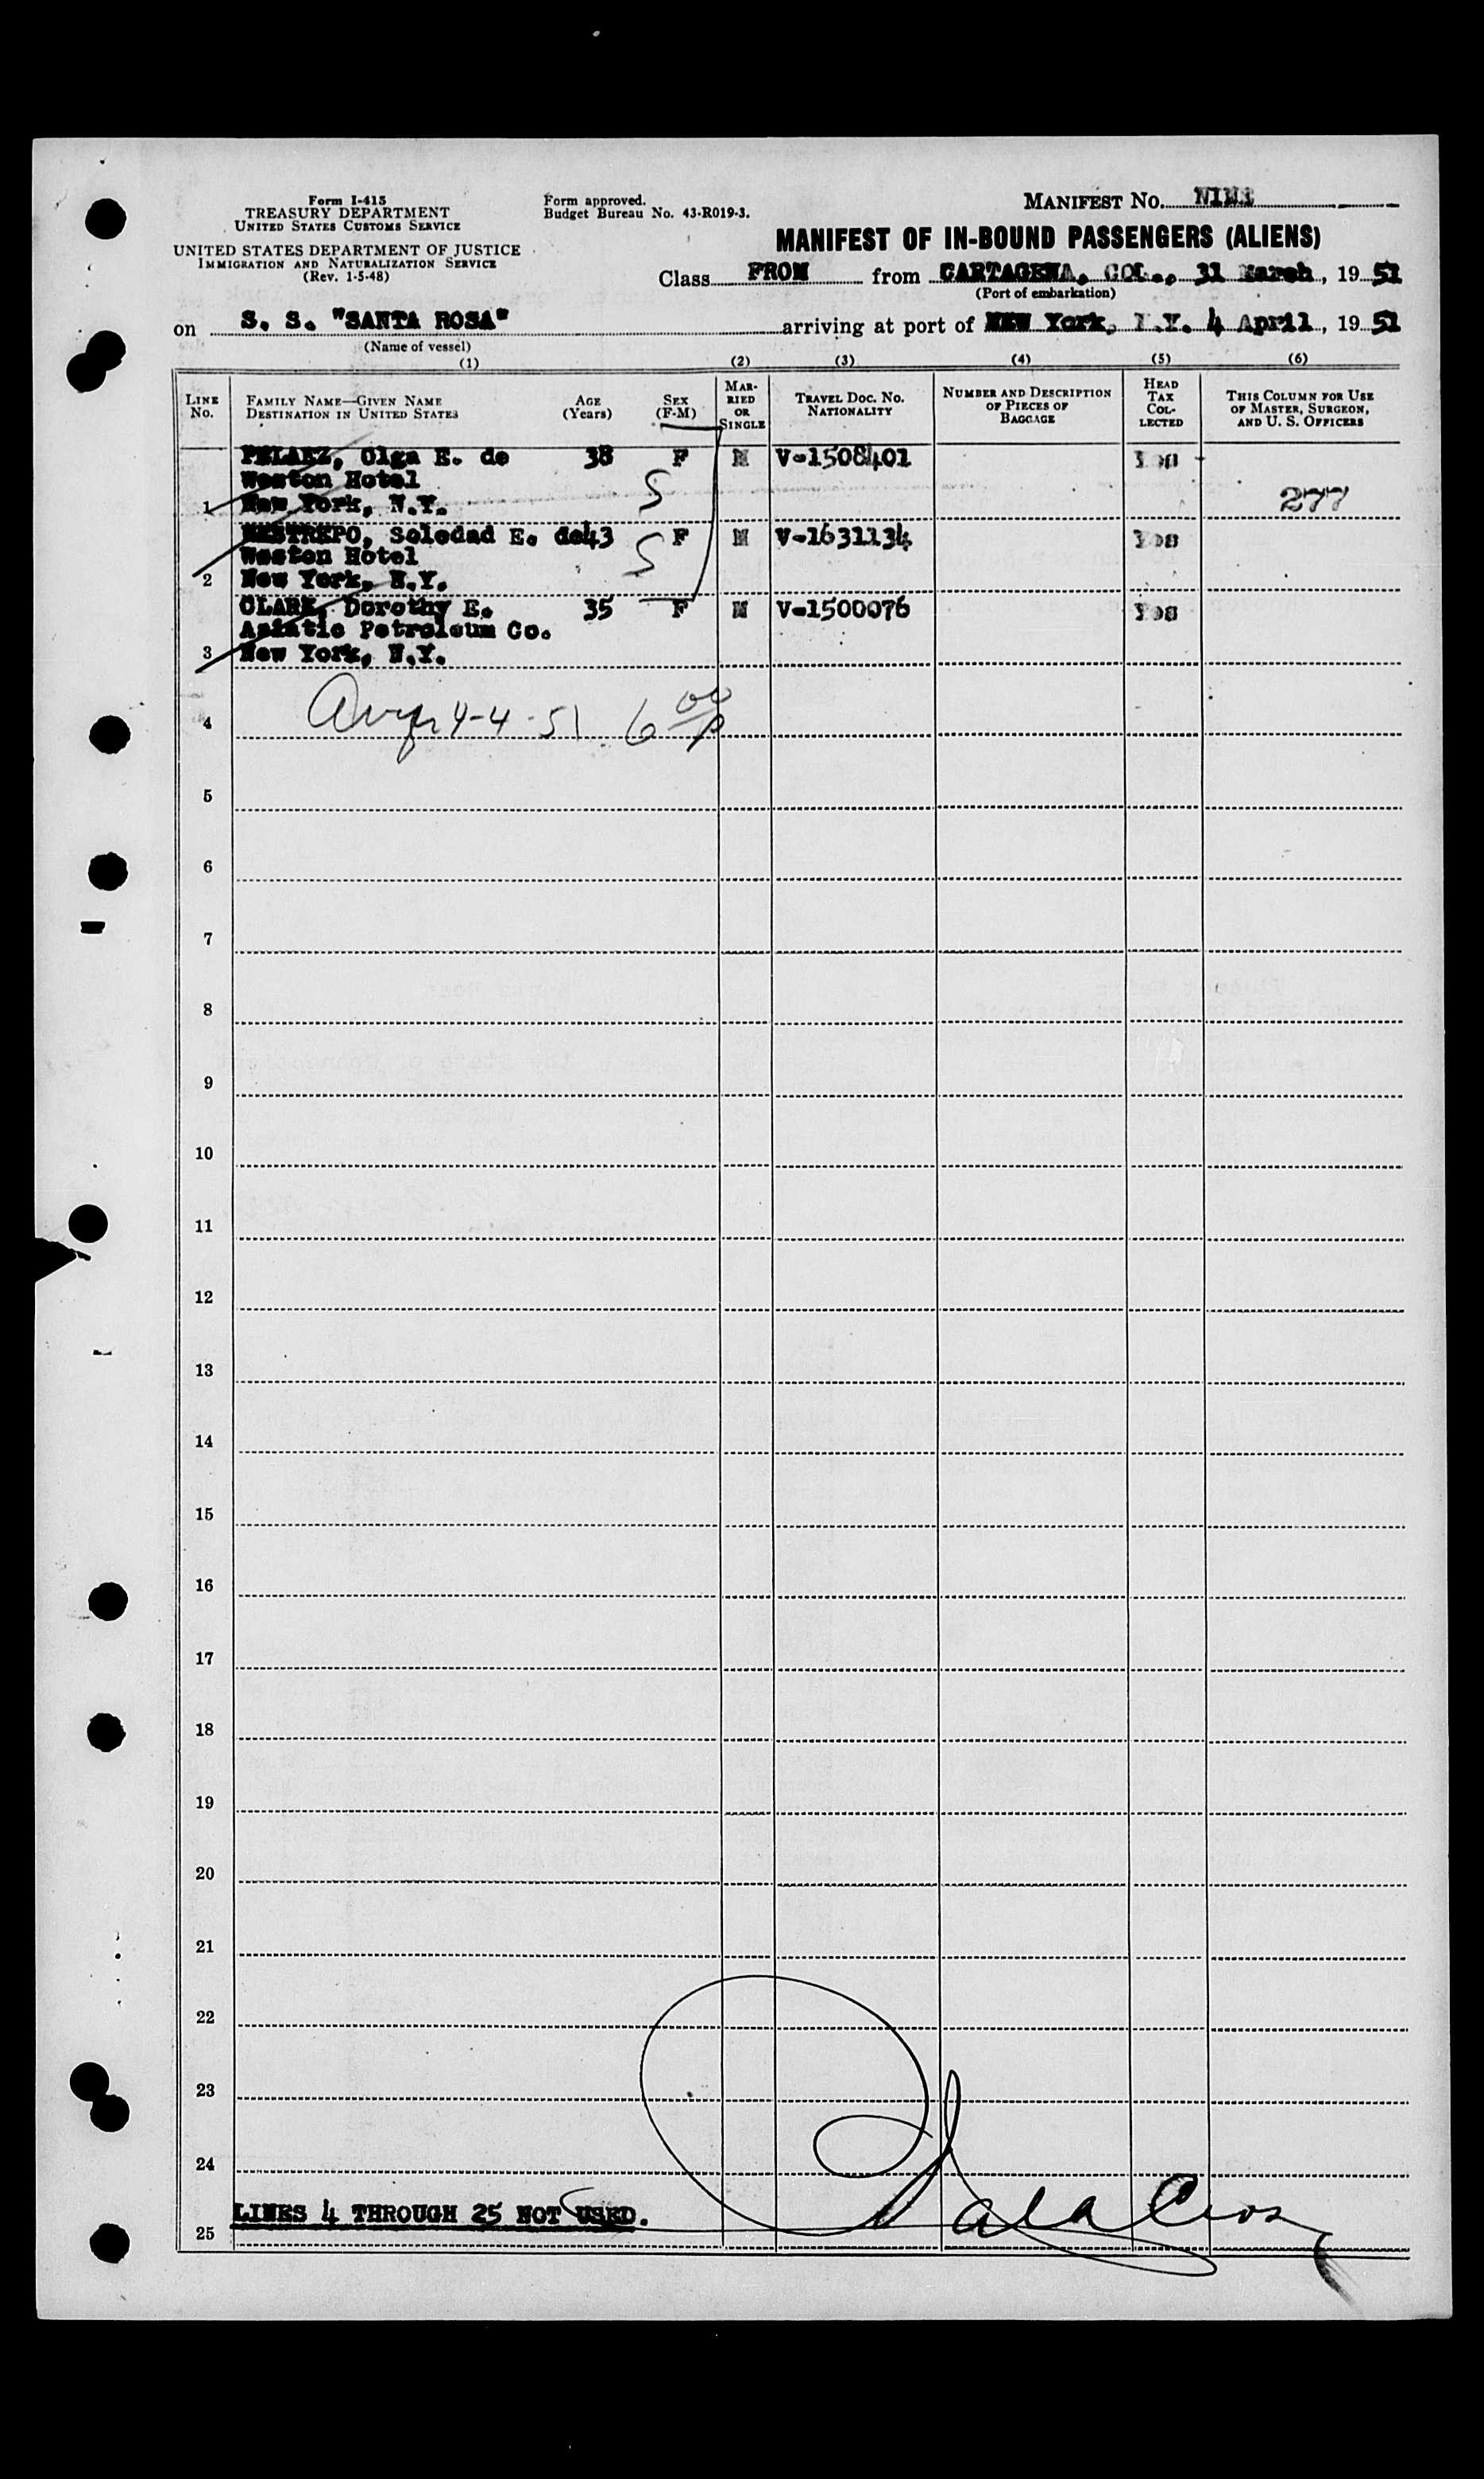 Form I-415
TREASURY DEPARTMENT
UNITED STATES CUSTOMS SERVICE
UNITED STATES DEPARTMENT OF JUSTICE
IMMIGRATION AND NATURALIZATION SERVICE
(Rev. 1-5-48)
Form approved.
Budget Bureau No. 43-R019-3.
MANIFEST No.
MANIFEST OF IN-BOUND PASSENGERS (ALIENS)
Class FROM from CARTAGENA, COL., 31 March, 19 51
(Port of embarkation)
on S. S. "SANTA ROSA" arriving at port of NEW York, N.Y. 4 April, 19 51
(Name of vessel)
(1) (2) (3) (4) (5) (6)
LINE No. FAMILY NAME—GIVEN NAME DESTINATION IN UNITED STATES AGE (Years) SEX (F-M) MARRIED OR SINGLE TRAVEL DOC. No. NATIONALITY NUMBER AND DESCRIPTION OF PIECES OF BAGGAGE HEAD TAX COLLECTED THIS COLUMN FOR USE OF MASTER, SURGEON, AND U. S. OFFICERS
PELAEZ, Olga E. de 38 F M V-1508401 Yes
Weston Hotel S
1 New York, N.Y. 277
RESTREPO, Soledad E. de 43 F M V-1631134 Yes
Weston Hotel S
2 New York, N.Y.
CLARK, Dorothy E. 35 F M V-1500076 Yes
Asiatic Petroleum Co.
3 New York, N.Y.
4 4-4-51 6 00 p
5
6
7
8
9
10
11
12
13
14
15
16
17
18
19
20
21
22
23
24
LINES 4 THROUGH 25 NOT USED.
25